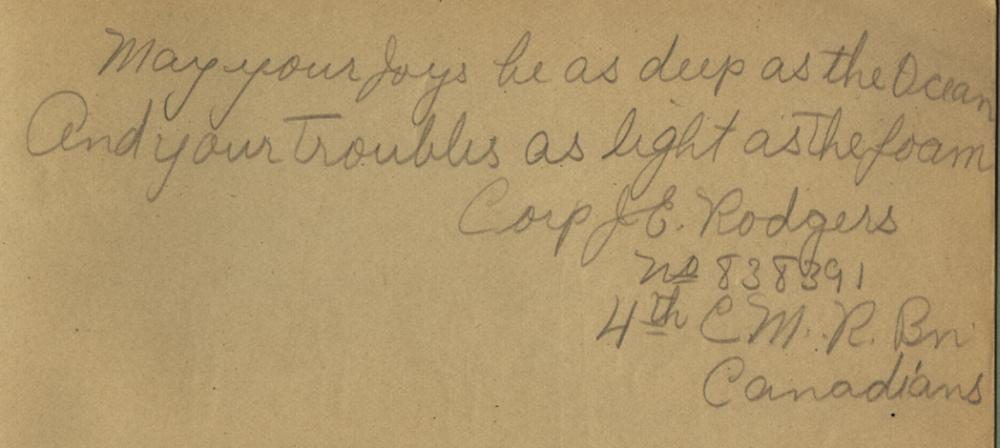 May your Joys be as deep as the Ocean
And your Troubles as light as the foam
Corp J E. Rodgers
No 838391
4th C. M. R. Bn
Canadians